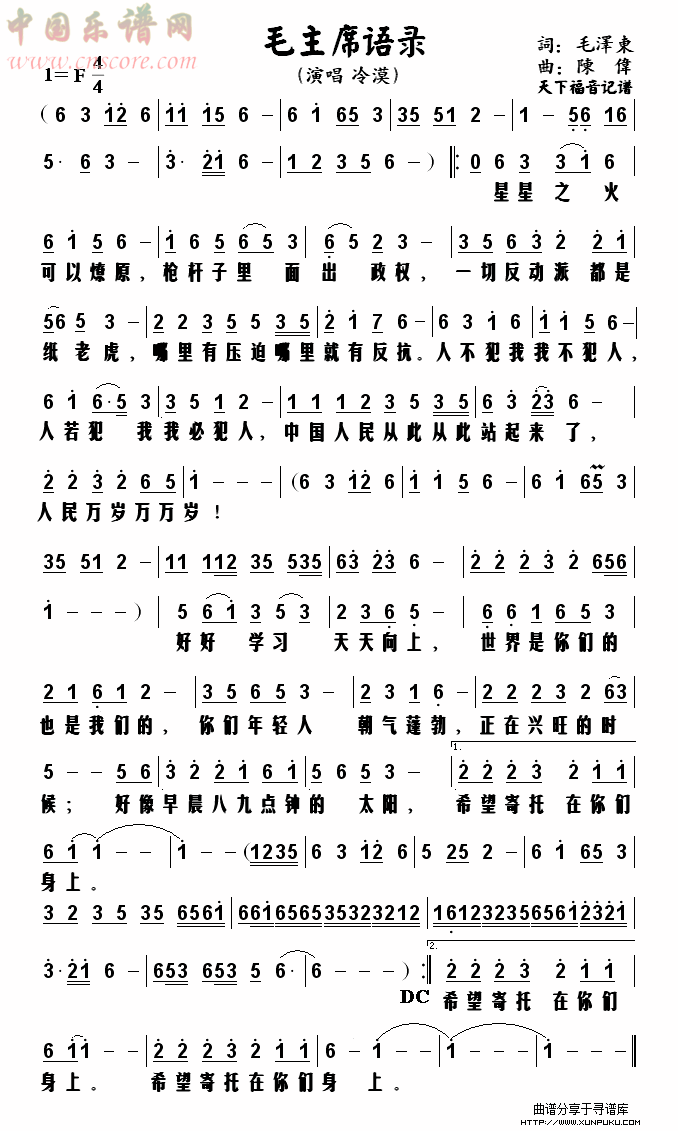 中国乐谱网
www.cnscore.com
毛主席语录
(演唱 冷漠)
詞：毛澤東
曲：陳 偉
天下福音记谱
1=F 4/4
(6 3 12 6 | 11 15 6 - | 6 1 65 3 | 35 51 2 - | 1 - 56 16
5· 6 3 - | 3· 21 6 - | 1 2 3 5 6 - ) ‖: 0 6 3 3 1 6
星 星 之 火
6 1 5 6 - | 1 6 5 6 5 3 | 6 5 2 3 - | 3 5 6 3 2 2 1
可 以 燎 原， 枪 杆 子 里 面 出 政 权， 一 切 反 动 派 都 是
56 5 3 - | 2 2 3 5 5 3 5 | 2 1 7 6 - | 6 3 1 6 | 1 1 5 6 -
纸 老 虎， 哪 里 有 压 迫 哪 里 就 有 反 抗。 人 不 犯 我 我 不 犯 人，
6 1 6·5 3 | 3 5 1 2 - | 1 1 1 2 3 5 3 5 | 6 3 23 6 -
人 若 犯 我 我 必 犯 人， 中 国 人 民 从 此 从 此 站 起 来 了，
2 2 3 2 6 5 | 1 - - - | (6 3 12 6 | 11 15 6 - | 6 1 65 3
人 民 万 岁 万 万 岁！
35 51 2 - | 11 112 35 535 | 63 23 6 - | 2 2 2 3 2 656
1 - - - ) | 5 6 1 3 5 3 | 2 3 6 5 - | 6 6 1 6 5 3
好 好 学 习 天 天 向 上， 世 界 是 你 们 的
2 1 6 1 2 - | 3 5 6 5 3 - | 2 3 1 6 - | 2 2 2 3 2 63
也 是 我 们 的， 你 们 年 轻 人 朝 气 蓬 勃， 正 在 兴 旺 的 时
5 - 5 6 | 3 2 2 1 6 1 | 5 6 5 3 - | 1. 2 2 2 3 1 1
候； 好 像 早 晨 八 九 点 钟 的 太 阳， 希 望 寄 托 在 你 们
6 1 1 - - | 1 - - (1235 | 6 3 12 6 | 5 25 2 - | 6 1 65 3
身 上。
3 2 3 5 35 6561 | 6616565353237212 | 1612323565612321
3· 21 6 - | 653 653 5 6· | 6 - - - ) :‖ 2. 2 2 2 3 1 1
DC 希 望 寄 托 在 你 们
6 11 - - | 2 2 2 3 2 1 1 | 6 - 1 - | 1 - - - | 1 - - - ‖
身 上。 希 望 寄 托 在 你 们 身 上。
曲谱分享于寻谱库
HTTP://WWW.XUNPUKU.COM